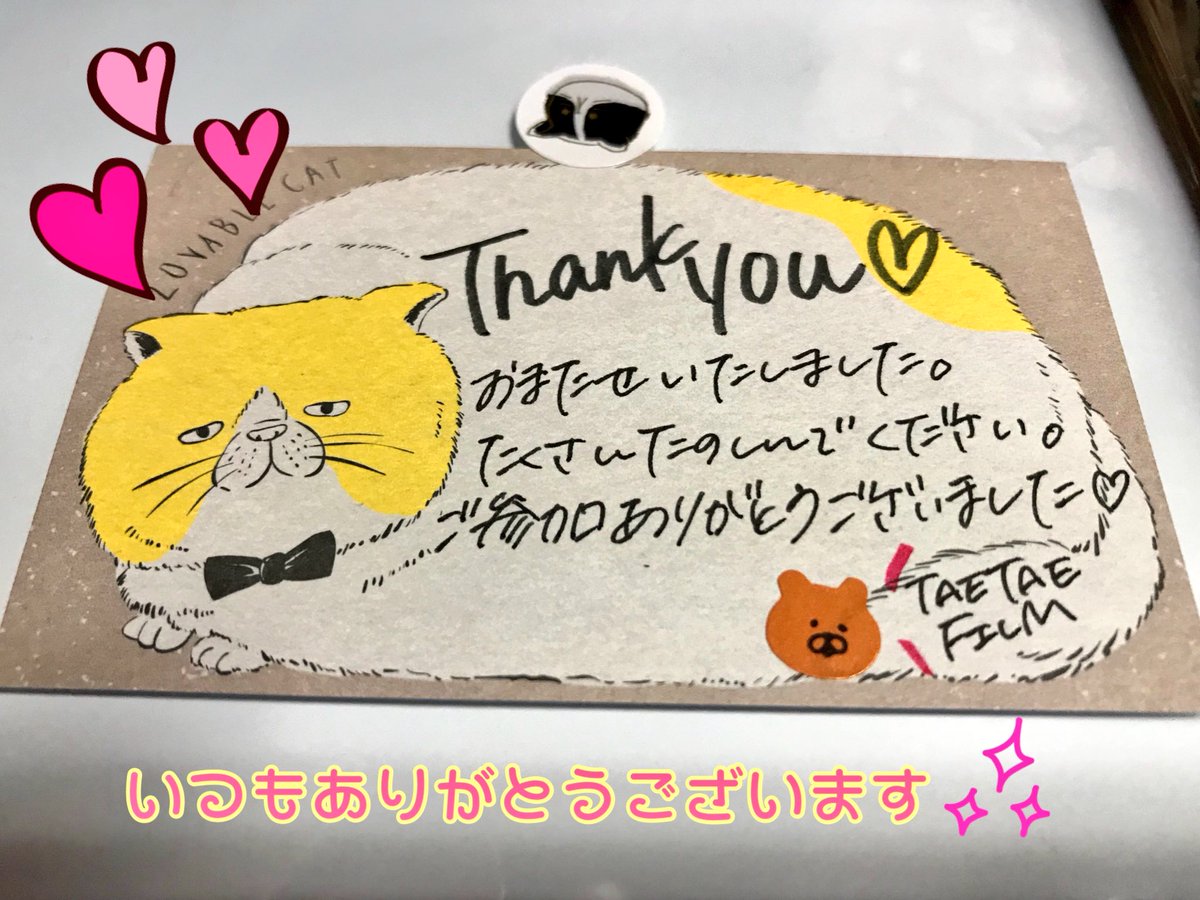 LOVABLE CAT
Thank you♡
おまたせいたしました。
たくさんたのしんでください。
ご参加ありがとうございました♡
TAETAE
FILM
いつもありがとうございます